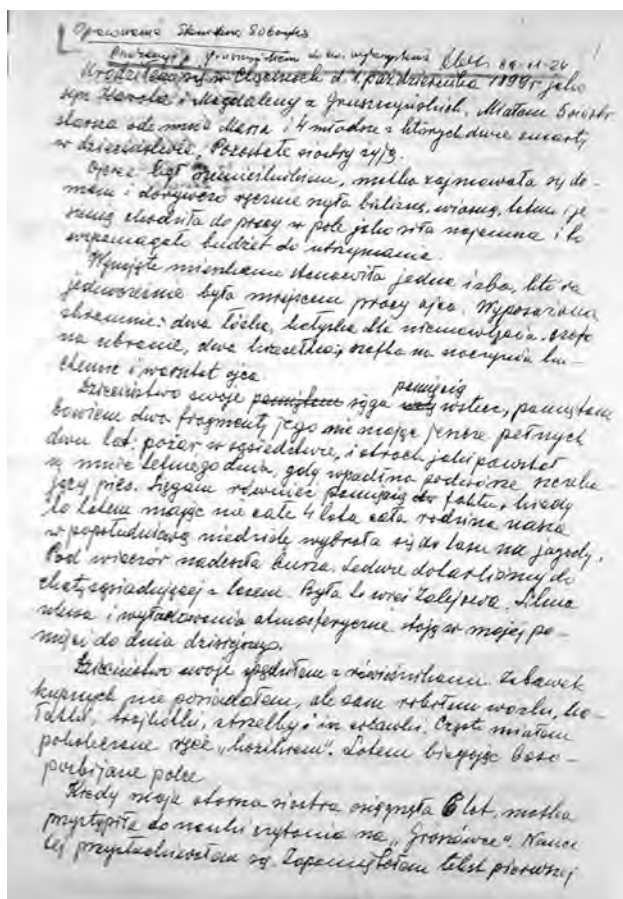 Opracowanie Stanisława
1
89-11-24
Urodziłem się w d. 1 października 1899 r. jako
syn Karola i Magdaleny z Gruszczyńskich. Miałem 5 sióstr
starsza ode mnie Maria i 4 młodsze z których dwie zmarły
w dzieciństwie. Pozostałe siostry żyją.
Ojciec był rzemieślnikiem, matka zajmowała się do-
mem i dorywczo ręcznie szyła bieliznę, wiosną, latem i je-
sienią chodziła do pracy w pole jako siła najemna i to
wspomagało budżet do utrzymania.
Wynajęte mieszkanie stanowiła jedna izba, która
jednocześnie była miejscem pracy ojca. Wyposażona
skromnie: dwa łóżka, kołyska dla niemowlęcia, szafa
na ubranie, dwa szafka na naczynia ku-
chenne i warsztat ojca.
Dzieciństwo swoje pamięcią sięga wstecz, pamiętam
bowiem dwa fragmenty jego nie mając jeszcze pełnych
dwu lat: pożar w sąsiedztwie, i strach jaki powstał
u mnie letniego dnia, gdy wpadł na podwórze szczeka-
jący pies. Sięgam również pamięcią do faktu, kiedy
to latem mając nie całe 4 lata cała rodzina nasza
w popołudniową niedzielę wybrała się do lasu na jagody.
Pod wieczór nadeszła burza. Ledwie dotarliśmy do
chaty sąsiadującej z lasem. Była to wieś Zalesowa. Silna
i wyładowania atmosferyczne stoją w mojej pa-
mięci do dnia dzisiejszego.
Dzieciństwo swoje spędziłem z rówieśnikami. Zabawek
kupnych nie posiadałem, ale sam robiłem wózki,
strzelby i in. zabawki. Często miałem
pokaleczone ręce „kozikiem”. Latem biegając boso -
porbijane palce.
Kiedy moja starsza siostra osiągnęła 6 lat, matka
przystąpiła do nauki czytania na
tej przysłuchiwałem się. Zapamiętałem tekst pierwszej